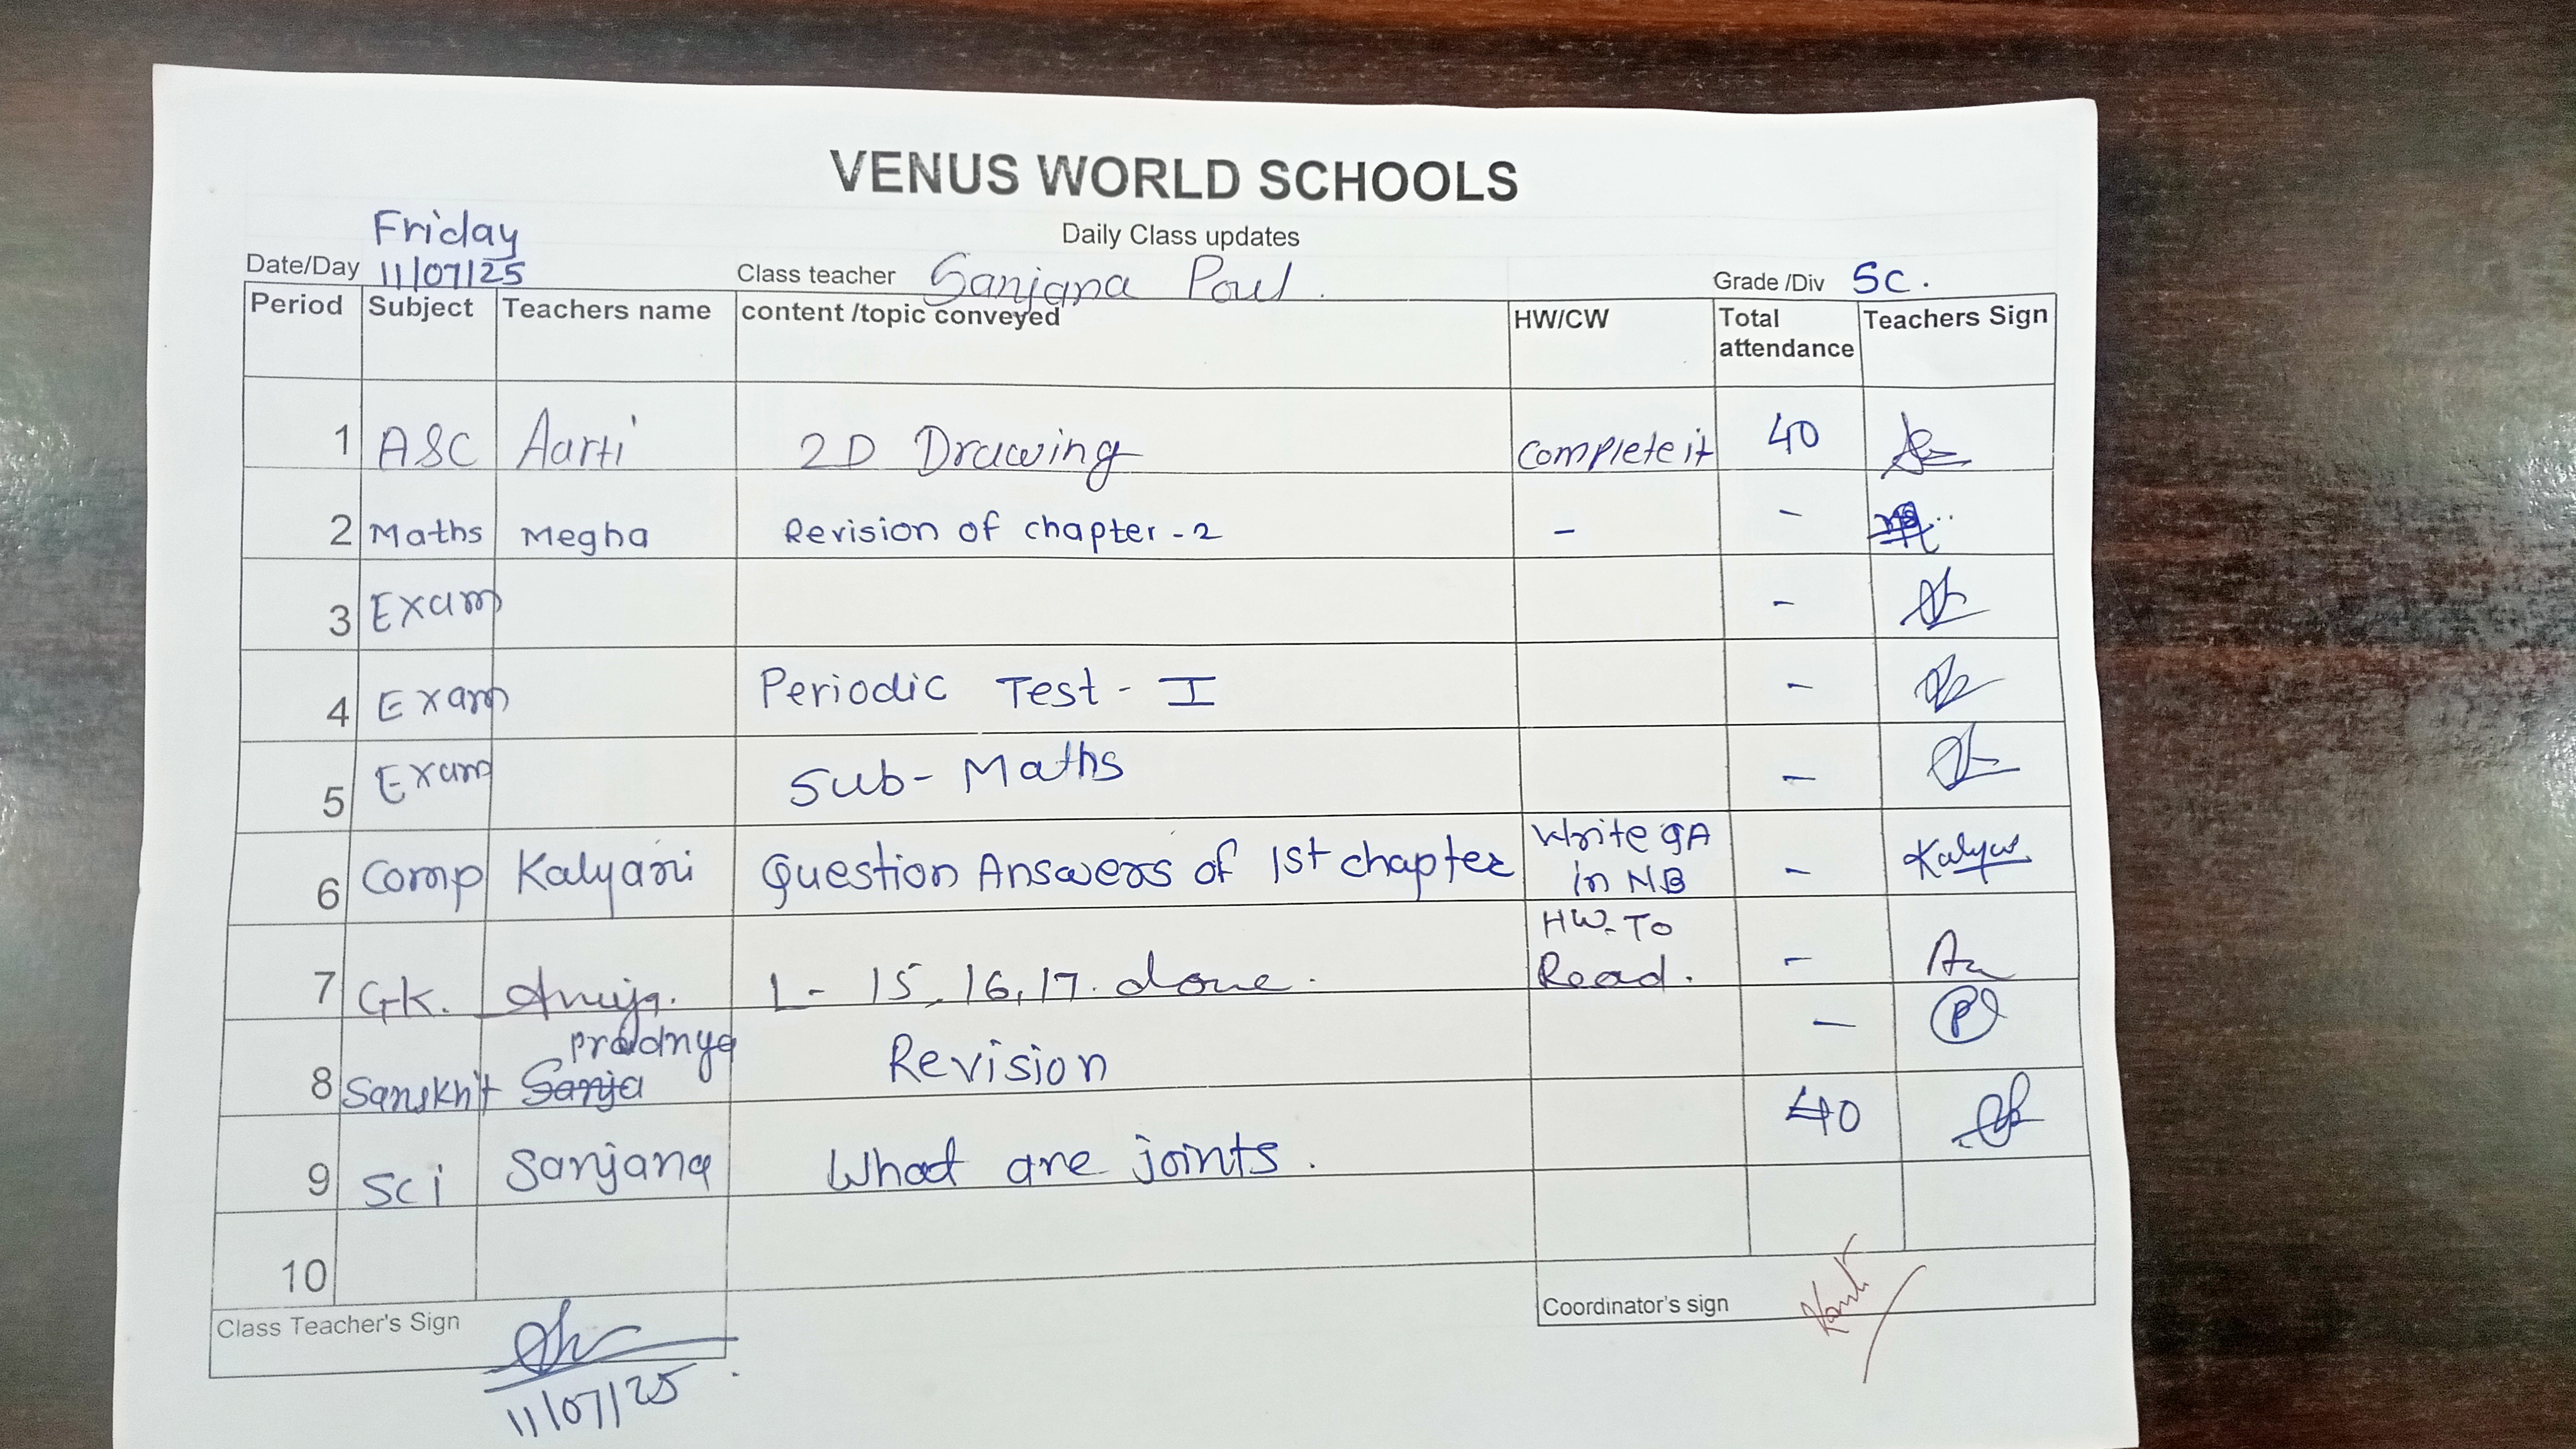 VENUS WORLD SCHOOLS
Daily Class updates
Date/Day Friday
11/07/25
Class teacher Sanjana Poul.
Grade /Div 5C.
Period Subject Teachers name content /topic conveyed HW/CW Total attendance Teachers Sign
1 ASC Aarti 2D Drawing Complete it 40
2 Maths Megha Revision of chapter - 2 - -
3 Exam -
4 Exam Periodic Test - I -
5 Exam Sub - Maths -
6 Comp Kalyani Question Answers of 1st chapter Write QA in NB - Kalyani
7 GK. Anuja. L - 15, 16, 17. done. HW. To Read. -
8 Sanskrit Sanja pradnya Revision -
9 Sci Sanjana What are joints. 40
10
Class Teacher's Sign
11/07/25
Coordinator's sign